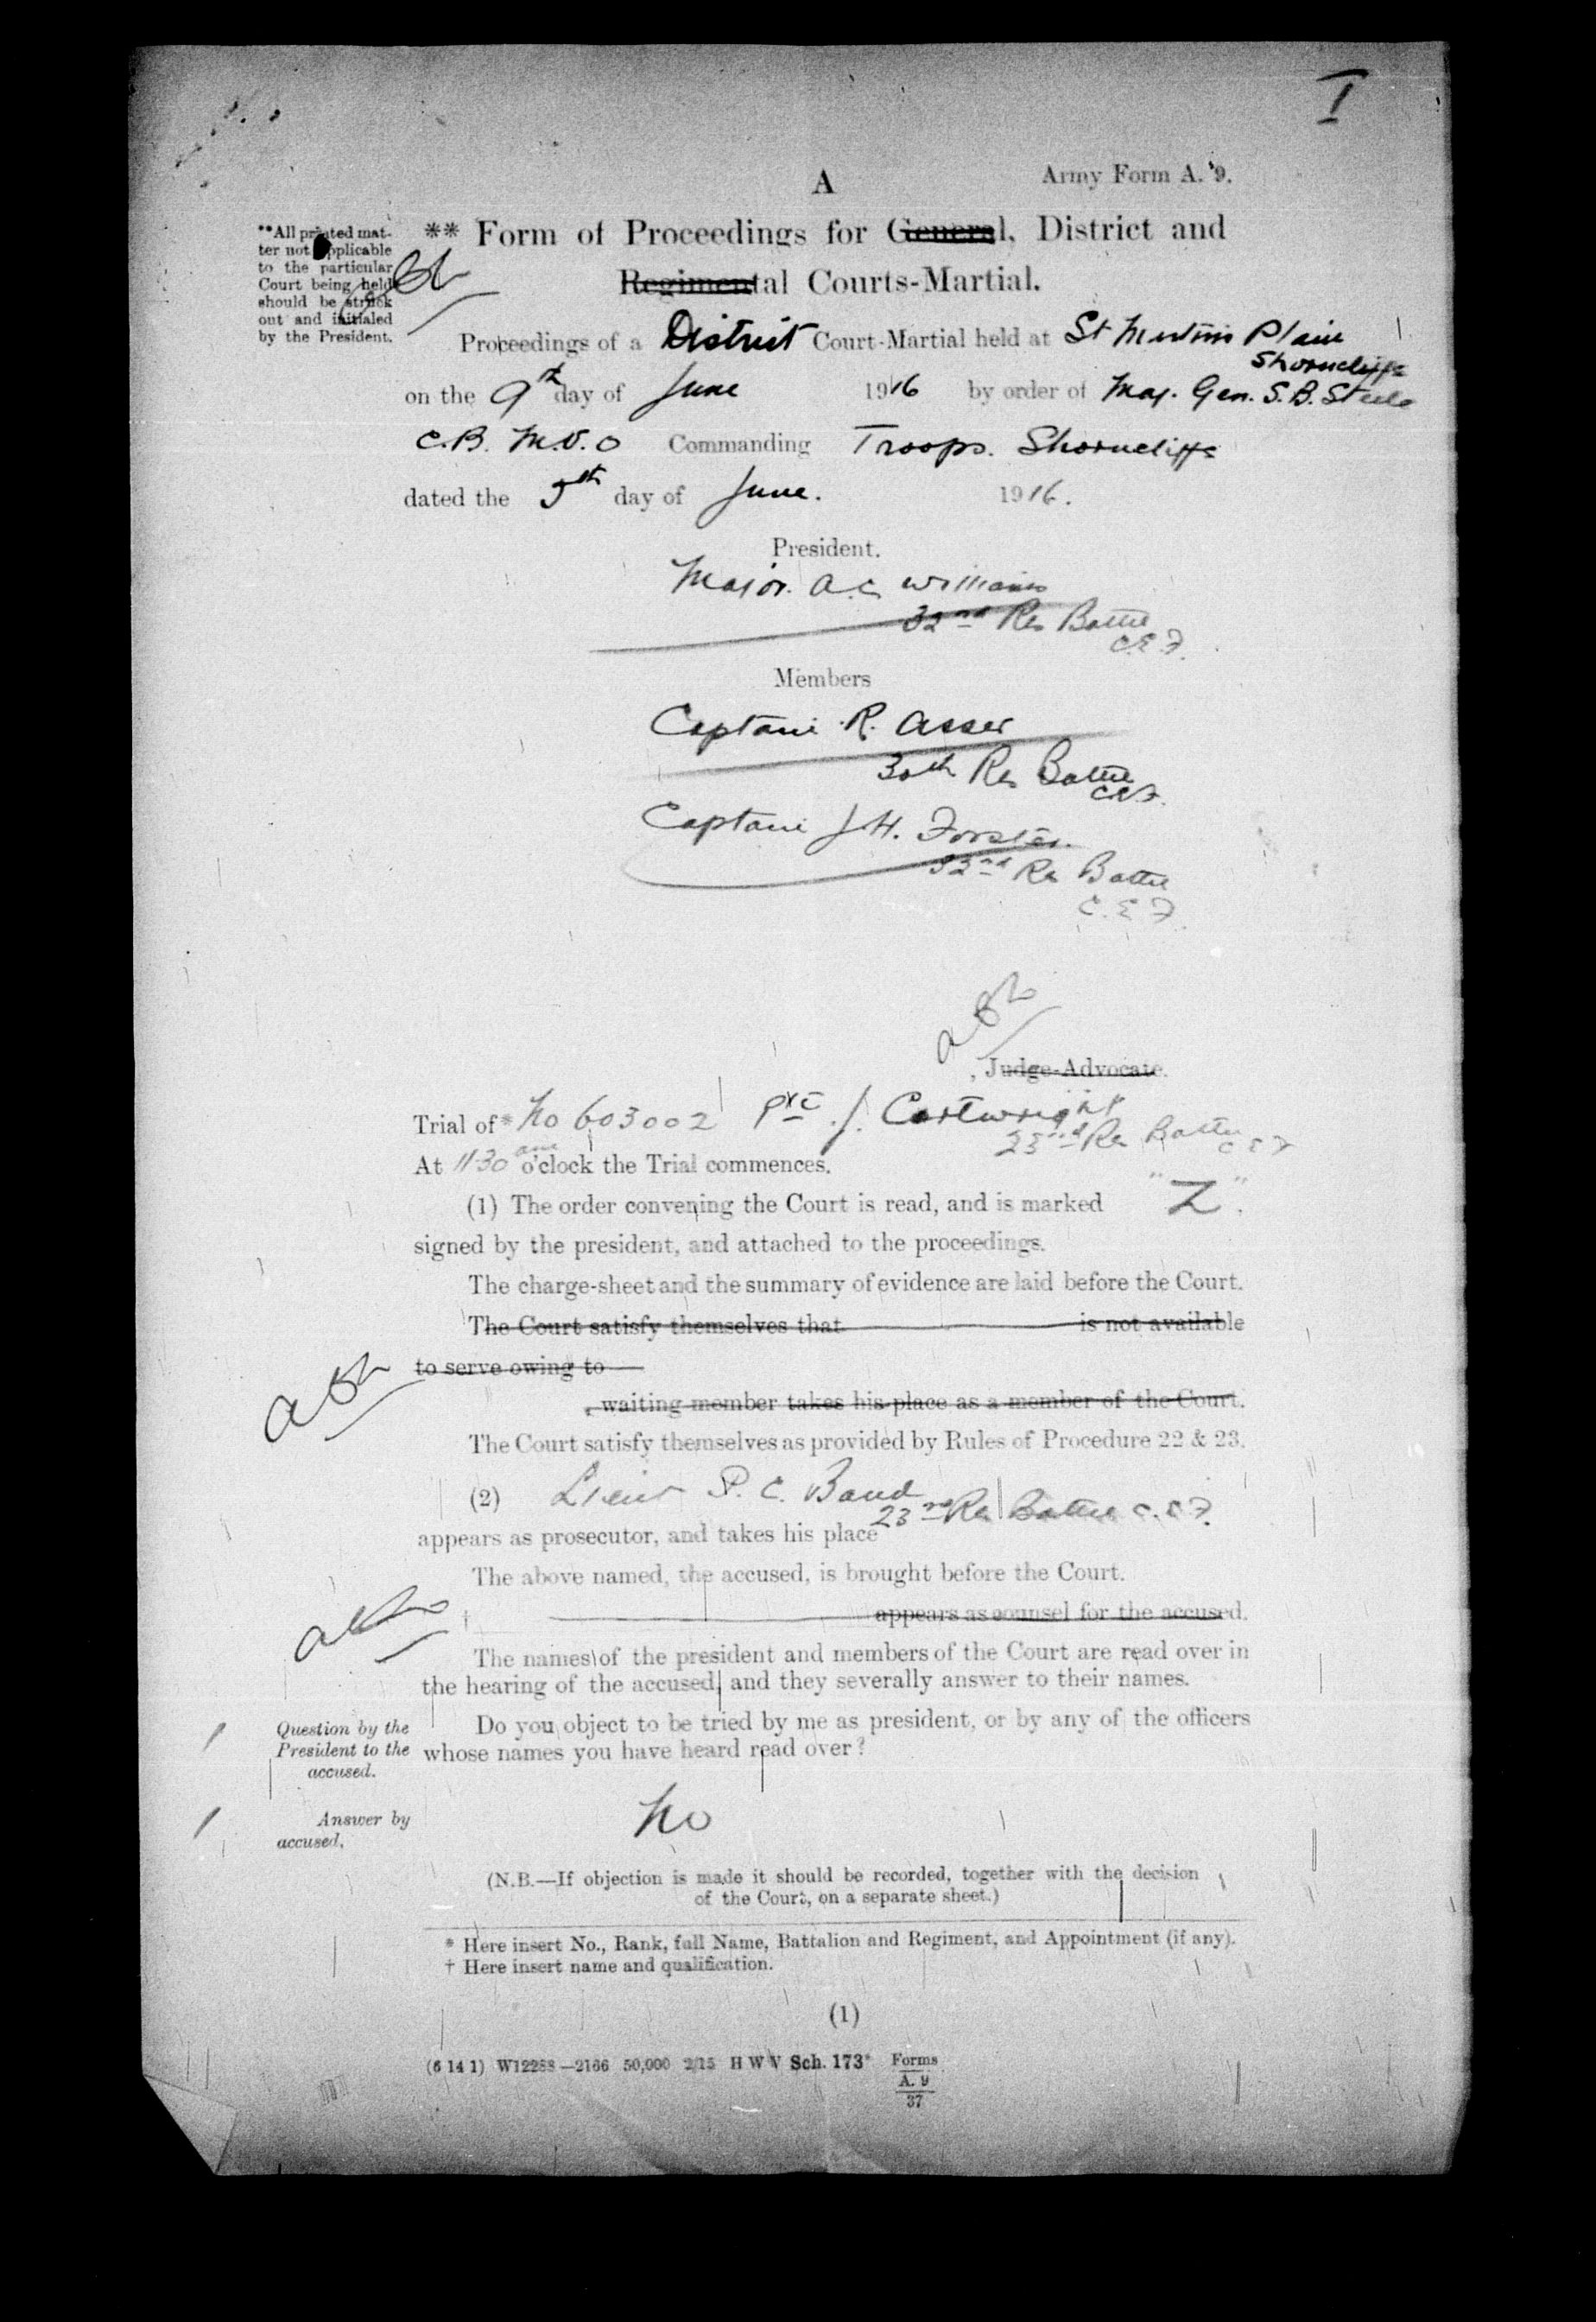 I
A
Army Form A. 9.
**All printed mat-
ter not applicable
to the particular
Court being held
should be struck
out and initialed
by the President.
** Form of Proceedings for General, District and
Regimental Courts-Martial.
Proceedings of a District Court-Martial held at St Martins Plain
Shorncliffe
on the 9th day of June 1916 by order of Maj. Gen. S.B. Steele
C.B. M.V.O Commanding Troops. Shorncliffe
dated the 5th day of June. 1916.
President.
Major. A.C. Williams
32nd Res Battn
C.E.F.
Members
Captain R. Asser
30th Res Battn
C.E.F.
Captain J.H. Forster.
32nd Res Battn
C.E.F.
Judge-Advocate.
Trial of * No 603002 Pte J. Cartwright
23rd Res Battn C E F
At 11-30 am o'clock the Trial commences.
(1) The order convening the Court is read, and is marked "Z".
signed by the president, and attached to the proceedings.
The charge-sheet and the summary of evidence are laid before the Court.
The Court satisfy themselves that is not available
to serve owing to
, waiting member takes his place as a member of the Court.
The Court satisfy themselves as provided by Rules of Procedure 22 & 23.
(2) Lieut P. C. Band
23rd Res Battn C.E.F.
appears as prosecutor, and takes his place
The above named, the accused, is brought before the Court.
† appears as counsel for the accused.
The names of the president and members of the Court are read over in
the hearing of the accused, and they severally answer to their names.
Question by the
President to the
accused.
Do you object to be tried by me as president, or by any of the officers
whose names you have heard read over?
Answer by
accused.
No
(N.B.—If objection is made it should be recorded, together with the decision
of the Court, on a separate sheet.)
* Here insert No., Rank, full Name, Battalion and Regiment, and Appointment (if any).
† Here insert name and qualification.
(1)
(6 14 1) W12288—2166 50,000 2/15 H W V Sch. 173* Forms
A. 9
37